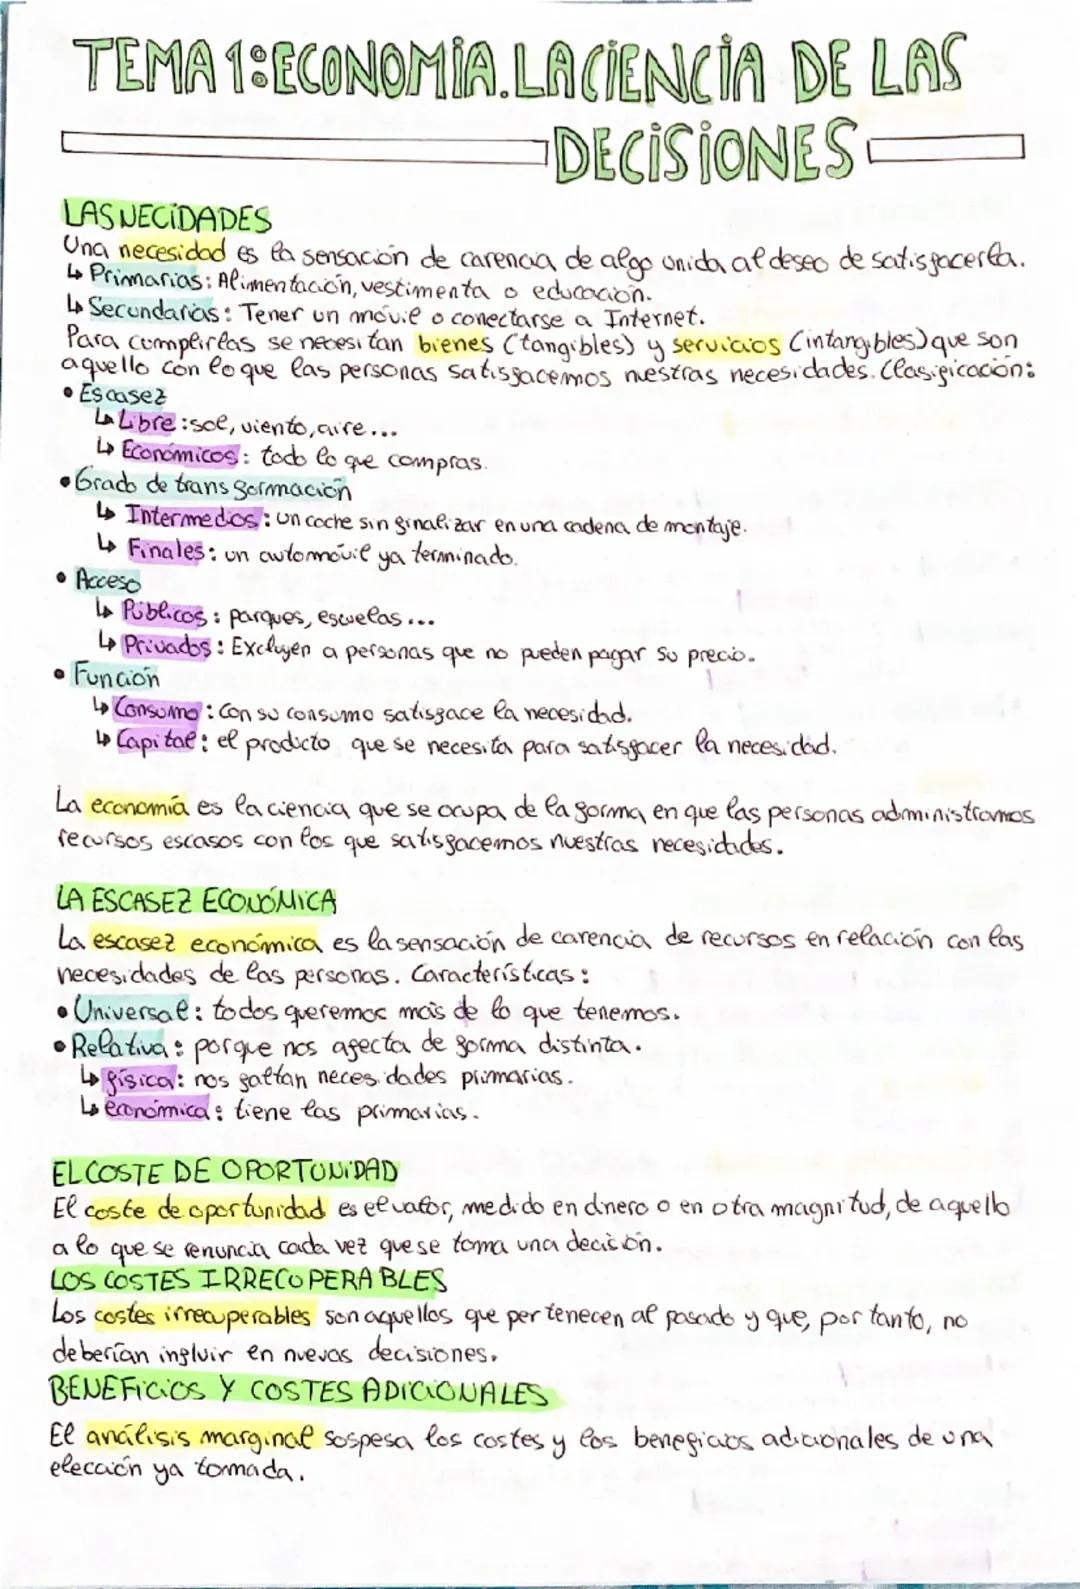 TEMA 1: ECONOMÍA. LA CIENCIA DE LAS
DECISIONES
LAS NECIDADES
Una necesidad es la sensación de carencia de algo unida al deseo de satisfacerla.
↳ Primarias: Alimentación, vestimenta o educación.
↳ Secundarias: Tener un móvil o conectarse a Internet.
Para cumplirlas se necesitan bienes (tangibles) y servicios (intangibles) que son
aquello con lo que las personas satisfacemos nuestras necesidades. Clasificación:
• Escasez
↳ Libre: sol, viento, aire...
↳ Económicos: todo lo que compras.
• Grado de transformación
↳ Intermedios: un coche sin finalizar en una cadena de montaje.
↳ Finales: un automóvil ya terminado.
• Acceso
↳ Públicos: parques, escuelas...
↳ Privados: Excluyen a personas que no pueden pagar su precio.
• Función
↳ Consumo: Con su consumo satisface la necesidad.
↳ Capital: el producto que se necesita para satisfacer la necesidad.
La economía es la ciencia que se ocupa de la forma en que las personas administramos
recursos escasos con los que satisfacemos nuestras necesidades.
LA ESCASEZ ECONÓMICA
La escasez económica es la sensación de carencia de recursos en relación con las
necesidades de las personas. Características:
• Universal: todos queremos más de lo que tenemos.
• Relativa: porque nos afecta de forma distinta.
↳ física: nos faltan necesidades primarias.
↳ económica: tiene las primarias.
EL COSTE DE OPORTUNIDAD
El coste de oportunidad es el valor, medido en dinero o en otra magnitud, de aquello
a lo que se renuncia cada vez que se toma una decisión.
LOS COSTES IRRECUPERABLES
Los costes irrecuperables son aquellos que pertenecen al pasado y que, por tanto, no
deberían influir en nuevas decisiones.
BENEFICIOS Y COSTES ADICIONALES
El análisis marginal sospesa los costes y los beneficios adicionales de una
elección ya tomada.